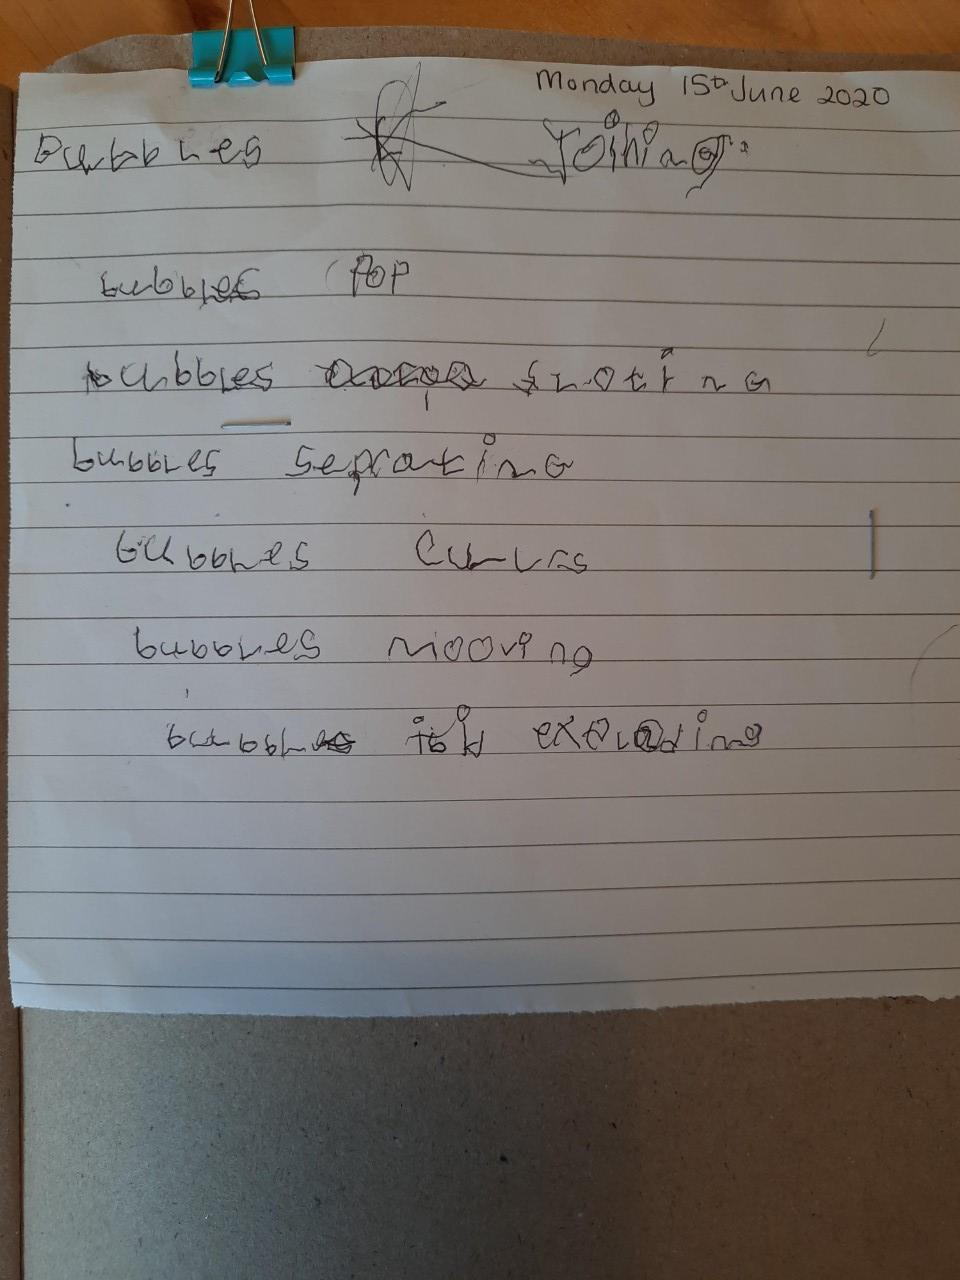 Monday 15th June 2020
Bubbles Joining
bubbles Pop
bubbles
bubbles seprating
bubbles curves
bubbles mooving
bubbles exploding